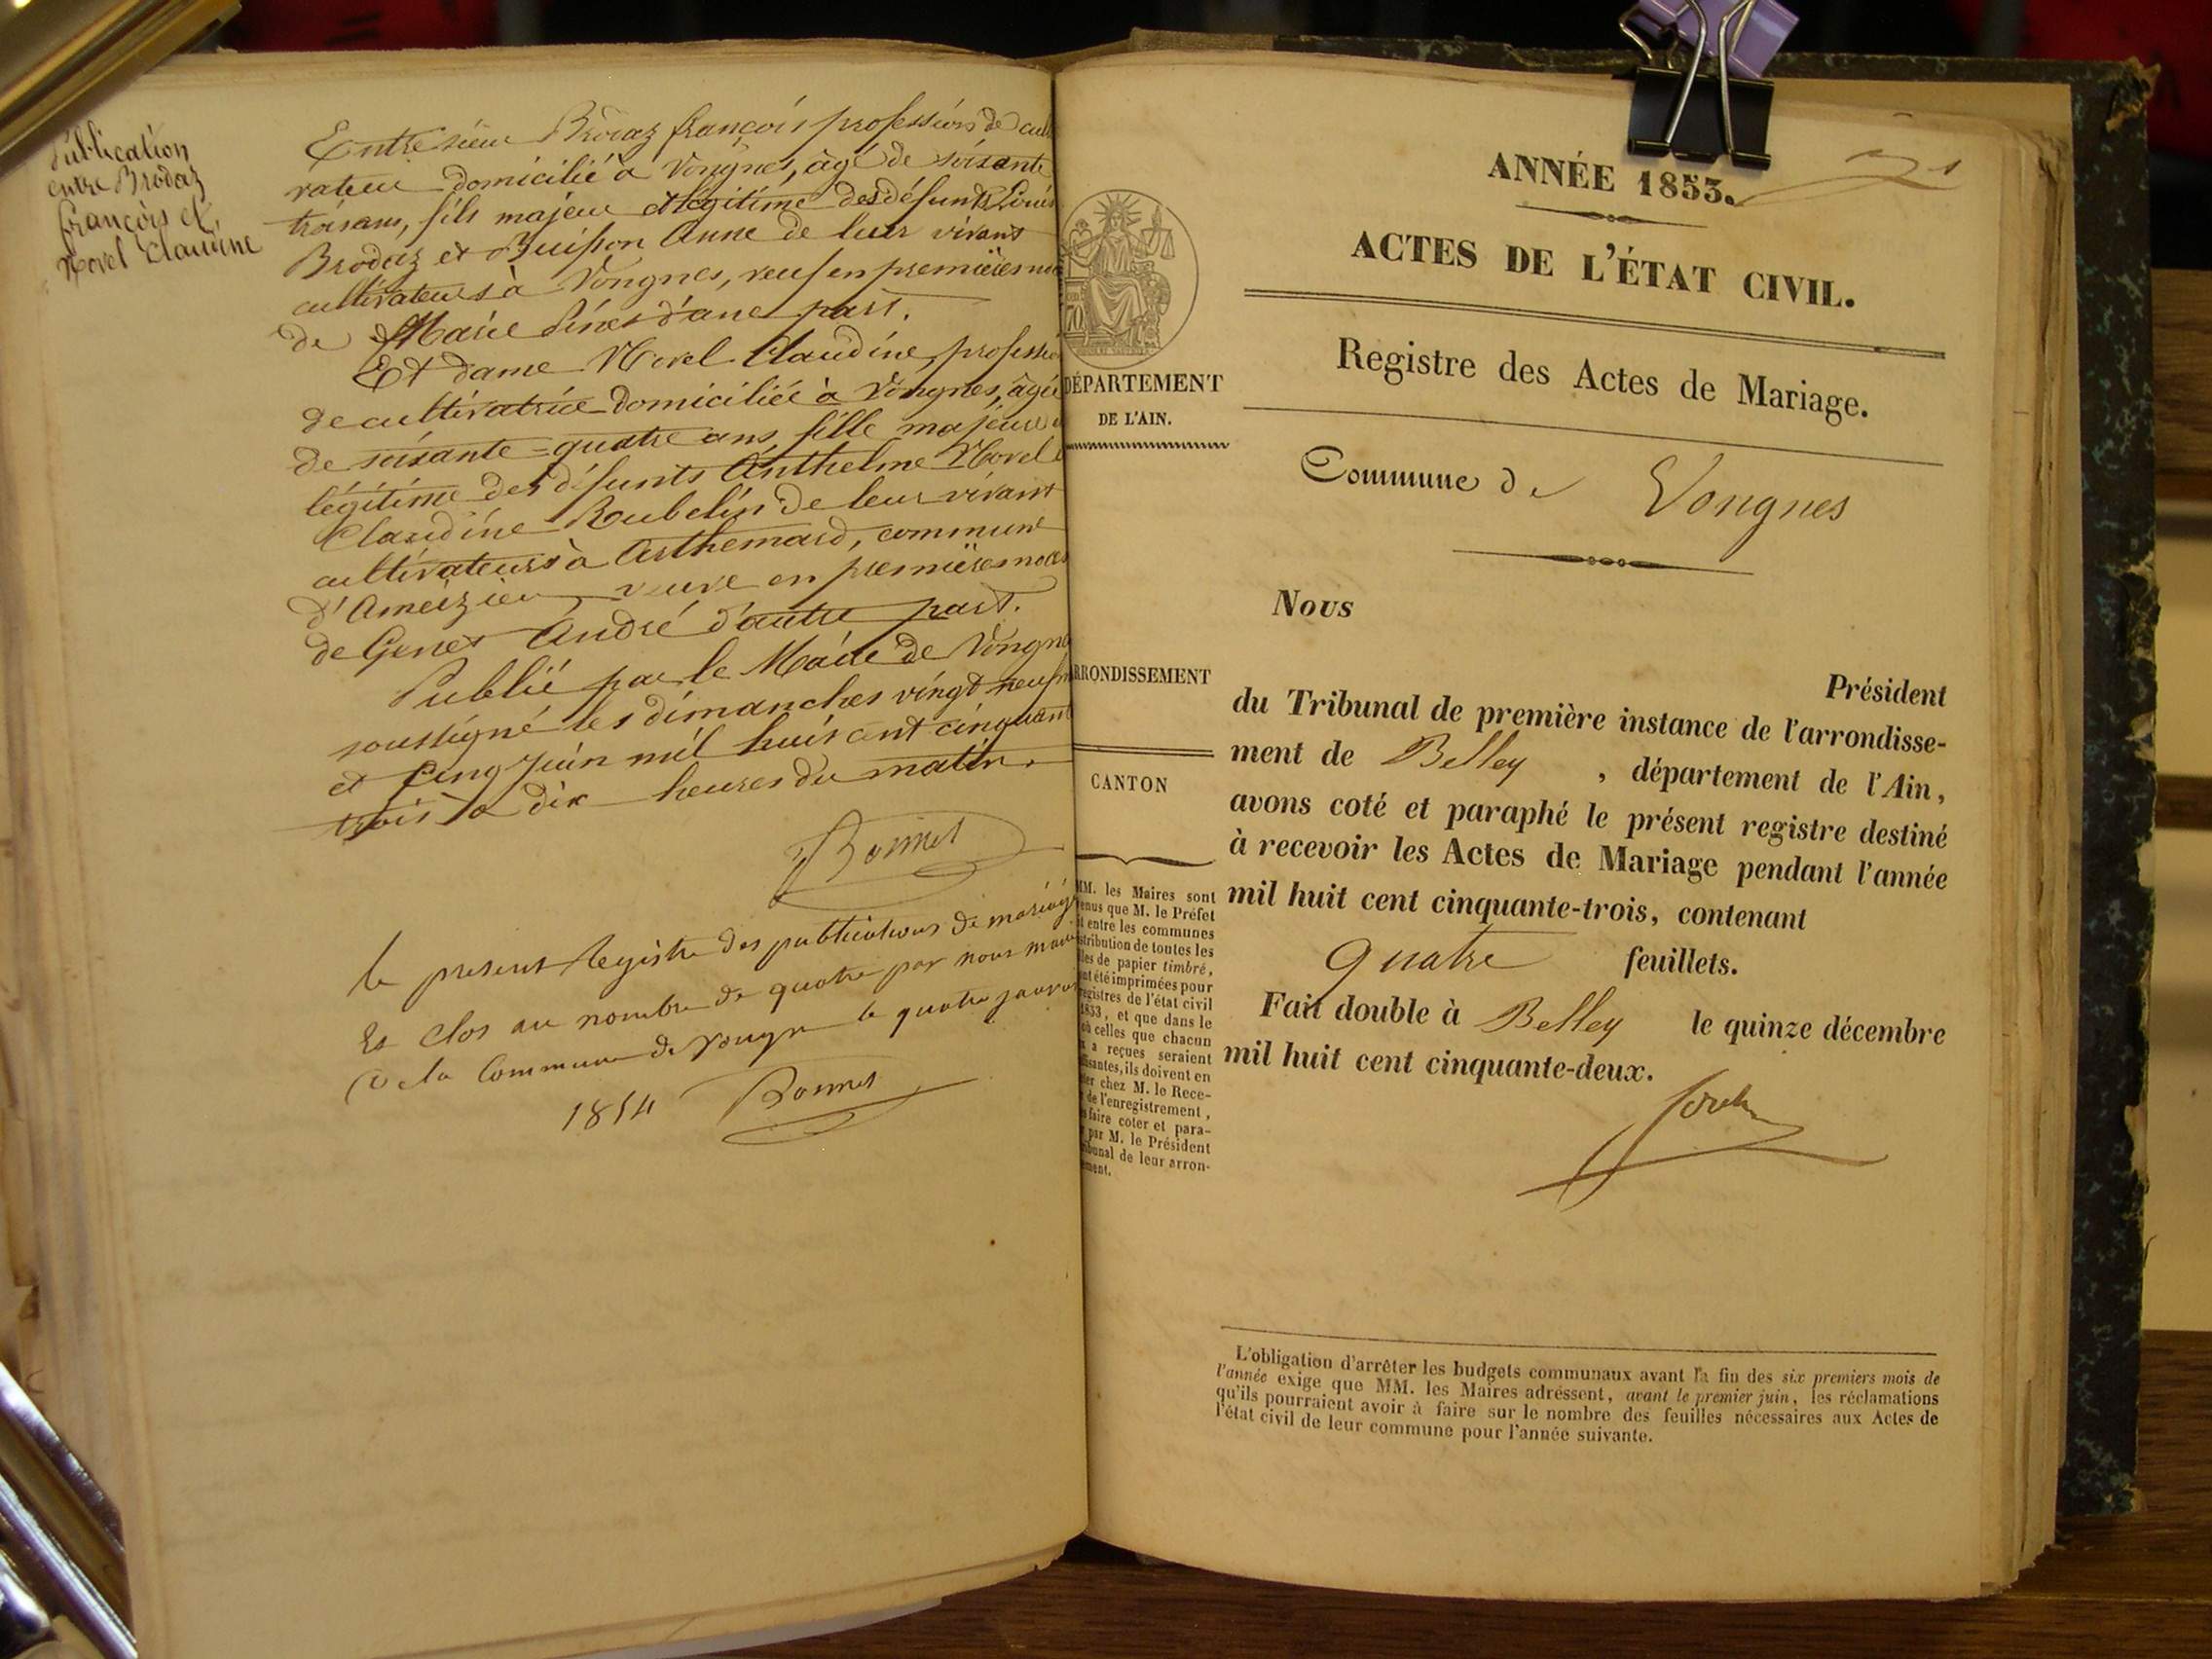 Publication
entre Brodaz
françois et
Morel Claudine
Entre sieur Brodaz françois profession de cult
vateur domicilié à Vongnes, âgé de soixante
trois ans, fils majeur et légitime des défunts Louis
Brodaz et Buisson Anne de leur vivant
cultivateurs à Vongnes, veuf en premières no
de Marie d'une part.
Et dame Morel Claudine, professio
de cultivatrice domiciliée à Vongnes, âgée
de soixante=quatre ans, fille majeure
légitime des défunts Anthelme Morel
Claudine Rubelin de leur vivant
cultivateurs à Arthemard, commune
d'Ameizieu, veuve en premières noces
de Genet André d'autre part.
Publié par le Maire de Vongne
soussigné les dimanches vingt neuf m
et Cinq juin mil huit cent cinquante
trois à dix heures du matin.
Bonnet
le present Registre des publications de mariag
Est Clos au nombre de quatre par nous maire
De la Commune de Vongne le quatre janvie
1854 Bonnet
ANNÉE 1853.
ACTES DE L'ÉTAT CIVIL.
Registre des Actes de Mariage.
Commune de Vongnes
70
DÉPARTEMENT
DE L'AIN.
RRONDISSEMENT
CANTON
MM. les Maires sont
enus que M. le Préfet
it entre les communes
stribution de toutes les
lles de papier timbré,
nt été imprimées pour
egistres de l'état civil
1853, et que dans le
où celles que chacun
x a reçues seraient
ffisantes, ils doivent en
ter chez M. le Rece-
de l'enregistrement,
s faire coter et para-
par M. le Président
ibunal de leur arron-
ement.
Nous
Président
du Tribunal de première instance de l'arrondisse-
ment de Belley, département de l'Ain,
avons coté et paraphé le présent registre destiné
à recevoir les Actes de Mariage pendant l'année
mil huit cent cinquante-trois, contenant
quatre feuillets.
Fait double à Belley le quinze décembre
mil huit cent cinquante-deux.
L'obligation d'arrêter les budgets communaux avant la fin des six premiers mois de
l'année exige que MM. les Maires adressent, avant le premier juin, les réclamations
qu'ils pourraient avoir à faire sur le nombre des feuilles nécessaires aux Actes de
l'état civil de leur commune pour l'année suivante.